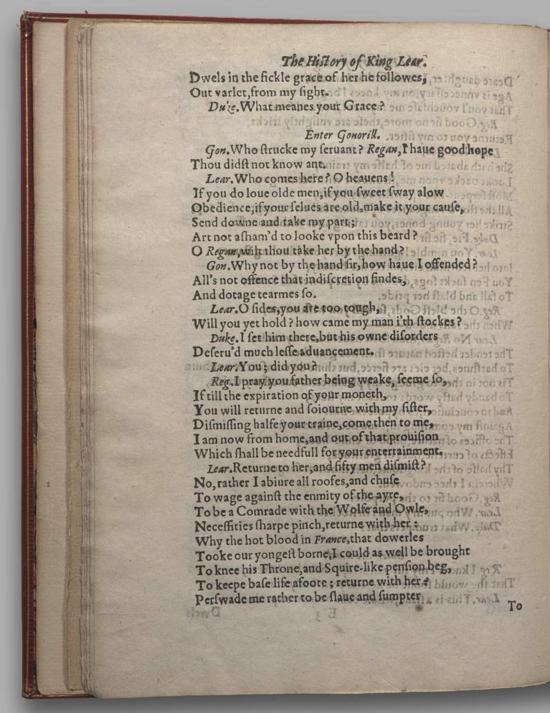 The History of King Lear.
Dwels in the fickle grace of her he followes,
Out varlet, from my sight.
Duke. What meanes your Grace?
Enter Gonorill.
Gon. Who strucke my seruant? Regan, I haue good hope
Thou didst not know ant.
Lear. Who comes here? O heauens!
If you do loue olde men, if you sweet sway alow
Obedience, if your selues are old, make it your cause,
Send downe and take my part;
Art not asham'd to looke vpon this beard?
O Regan, wilt thou take her by the hand?
Gon. Why not by the hand sir, how haue I offended?
All's not offence that indiscretion findes,
And dotage tearmes so.
Lear. O sides, you are too tough,
Will you yet hold? how came my man i'th stockes?
Duke. I set him there, but his owne disorders
Deseru'd much lesse aduancement.
Lear. You; did you?
Reg. I pray you father being weake, seeme so,
If till the expiration of your moneth,
You will returne and soiourne with my sister,
Dismissing halfe your traine, come then to me,
I am now from home, and out of that prouision
Which shall be needfull for your entertainment.
Lear. Returne to her, and fifty men dismist?
No, rather I abiure all roofes, and chuse
To wage against the enmity of the ayre,
To be a Comrade with the Wolfe and Owle,
Necessities sharpe pinch, returne with her:
Why the hot blood in France, that dowerles
Tooke our yongest borne, I could as well be brought
To knee his Throne, and Squire-like pension beg,
To keepe base life afoote; returne with her?
Perswade me rather to be slaue and sumpter
To